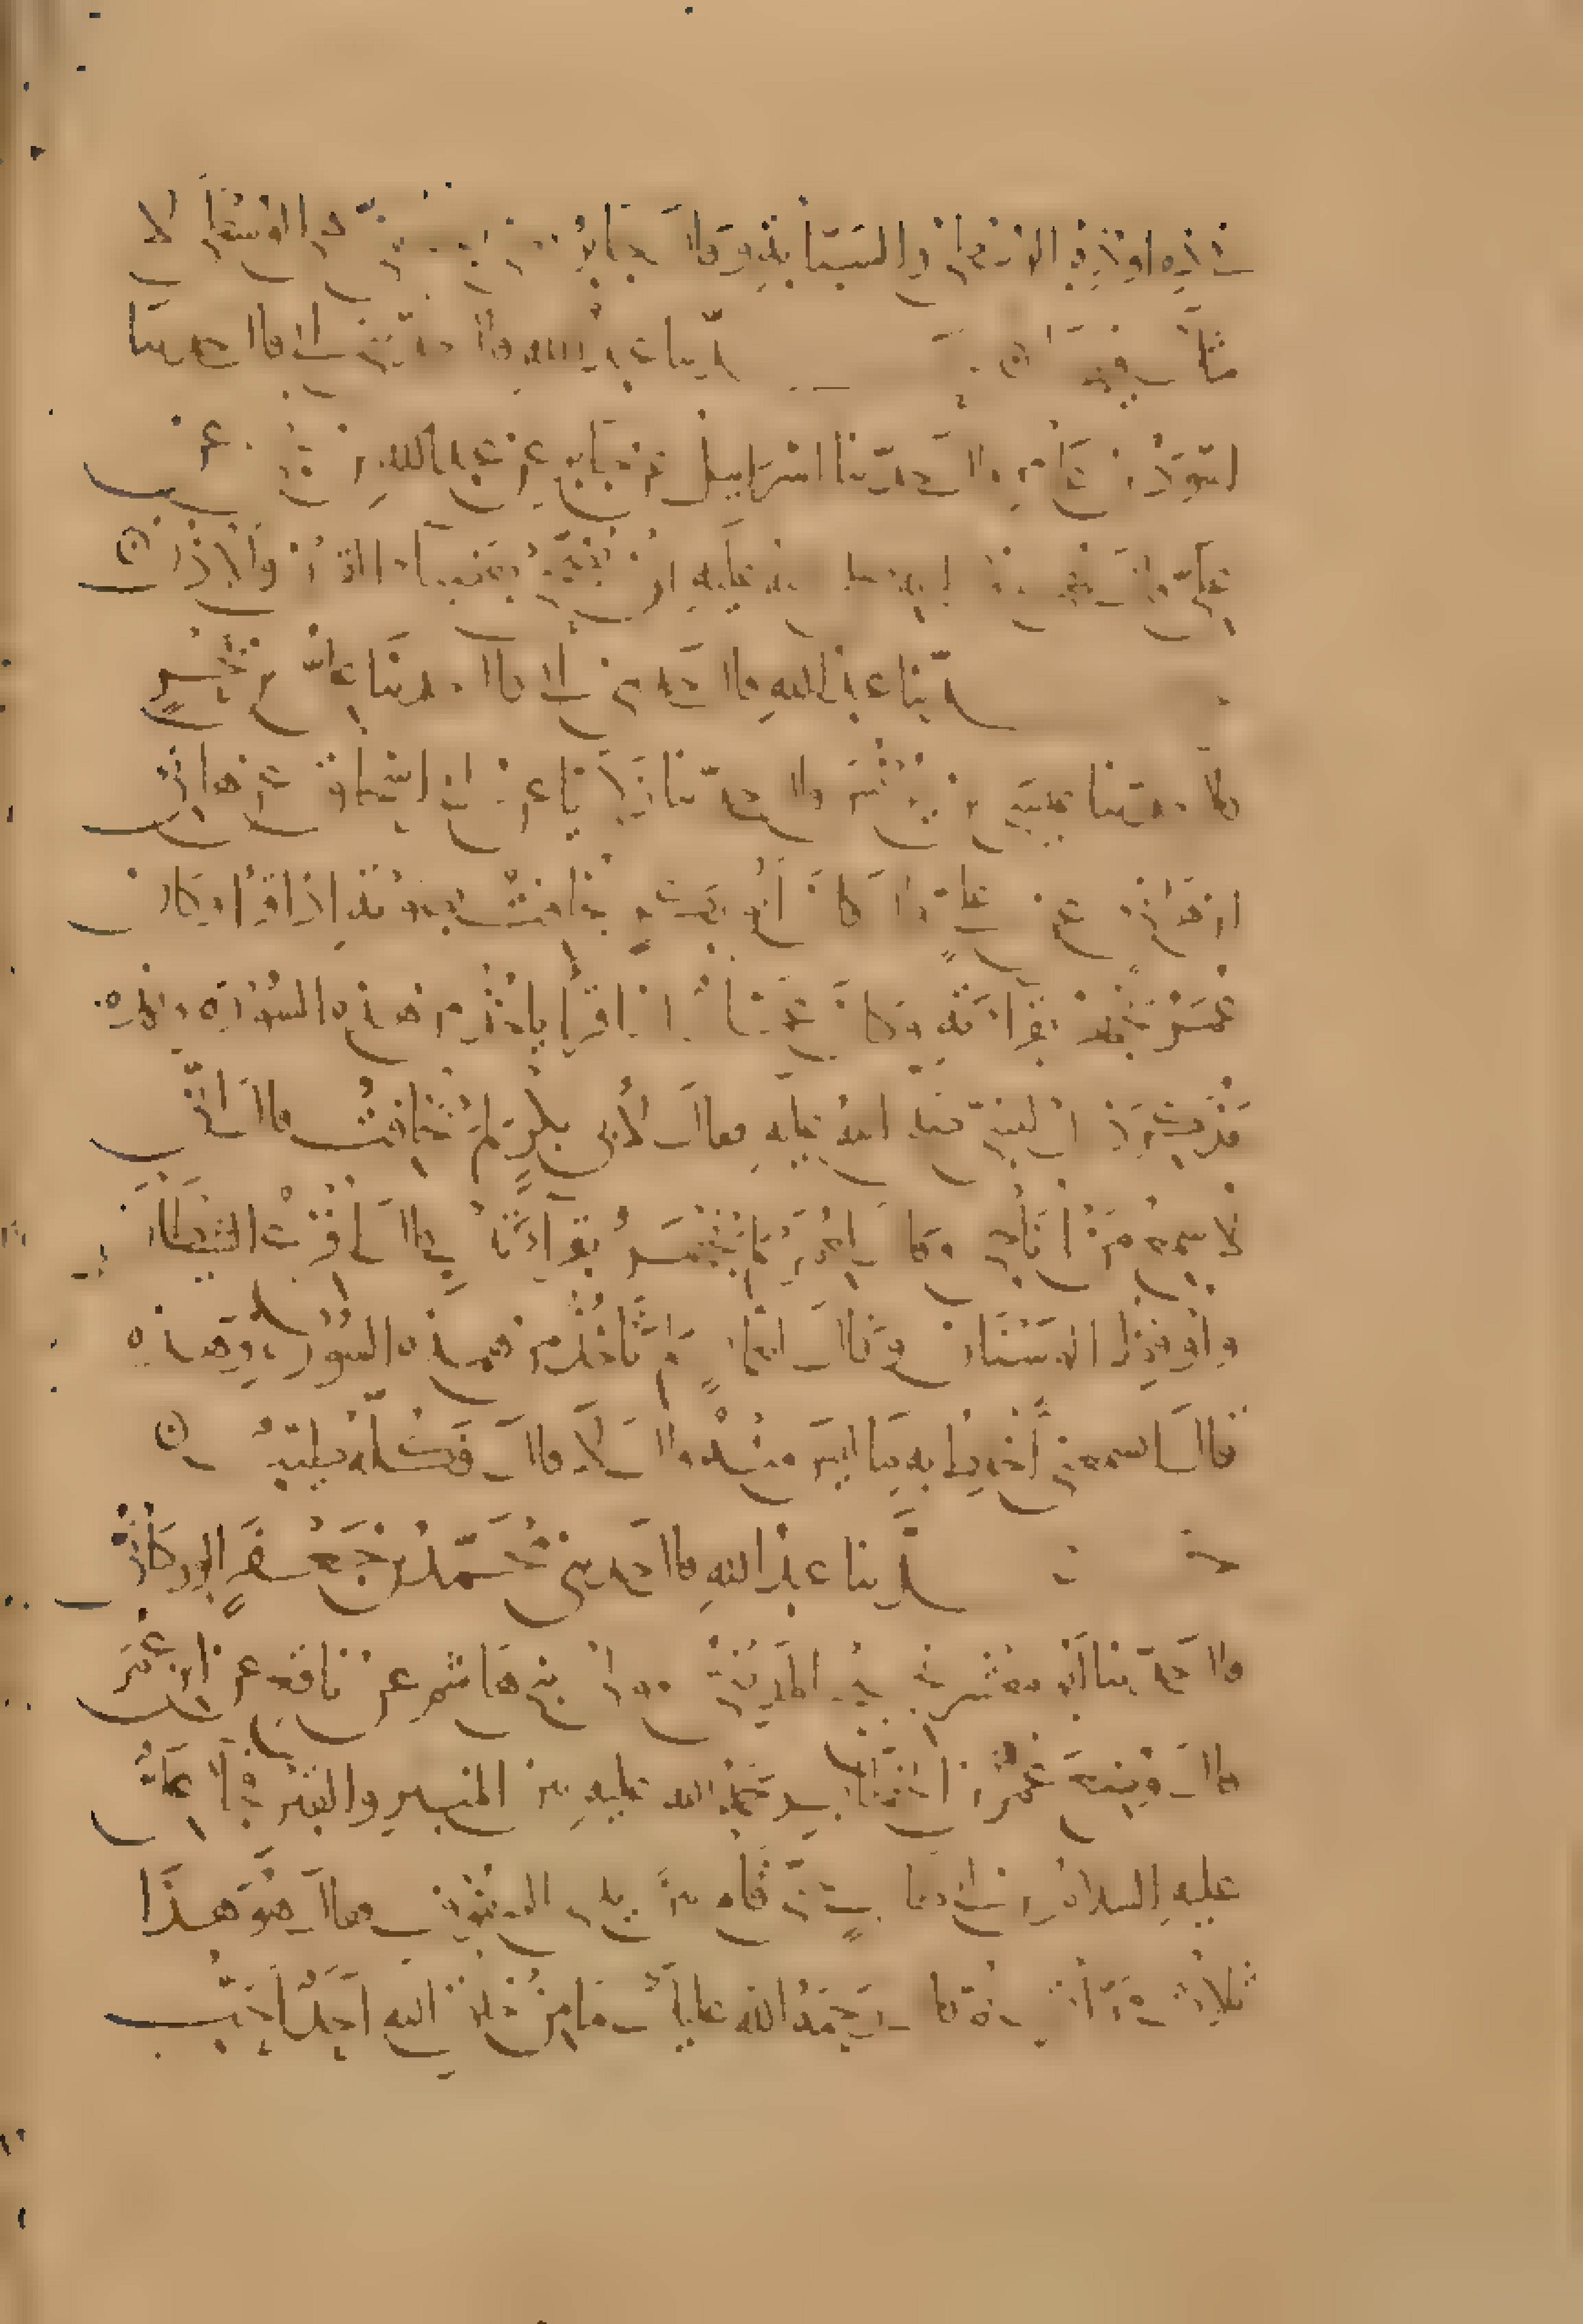 هذه او هذه الوسطى والسبابة وقال جابر الوسطى لا
شك فيه حدثنا عبد الله قال حدثني ابي قال حدثنا
اسود بن عامر قال حدثنا اسرائيل عن جابر عن عبد الله بن عن
علي قال نهى صلى الله عليه ان يضحى بعضباء القرن والاذن
حدثنا عبد الله قال حدثني ابي قال حدثنا علي بن بحر
قال حدثنا عيسى بن يونس قال حدثنا زكريا عن ابي اسحاق عن هانئ
ابن هانئ عن علي قال كان ابو بكر يخافت بصوته اذا قرا وكان
عمر يجهر بقراءته وكان عمار اذا قرا ياخذ من هذه السورة وهذه
فذكر ذاك للنبي صلى الله عليه فقال لابي بكر لم تخافت قال اني
لاسمع من اناجي وقال لعمر لم تجهر بقراءتك قال افزع الشيطان
واوقظ الوسنان وقال لعمار لم تاخذ من هذه السورة وهذه
قال اتسمعني اخلط به ما ليس منه قال لا قال فكله طيب
حدثنا عبد الله قال حدثني محمد بن جعفر الوركاني
قال حدثنا ابو معشر نجيح المديني مولى بني هاشم عن نافع عن ابن عمر
قال وضع عمر بن الخطاب رحمة الله عليه بين المنبر والقبر فجاء علي
عليه السلام حتى قام بين يدي الصفوف فقال هو هذا
ثلاث مرات ثم قال رحمة الله عليك ما من خلق الله احد احب